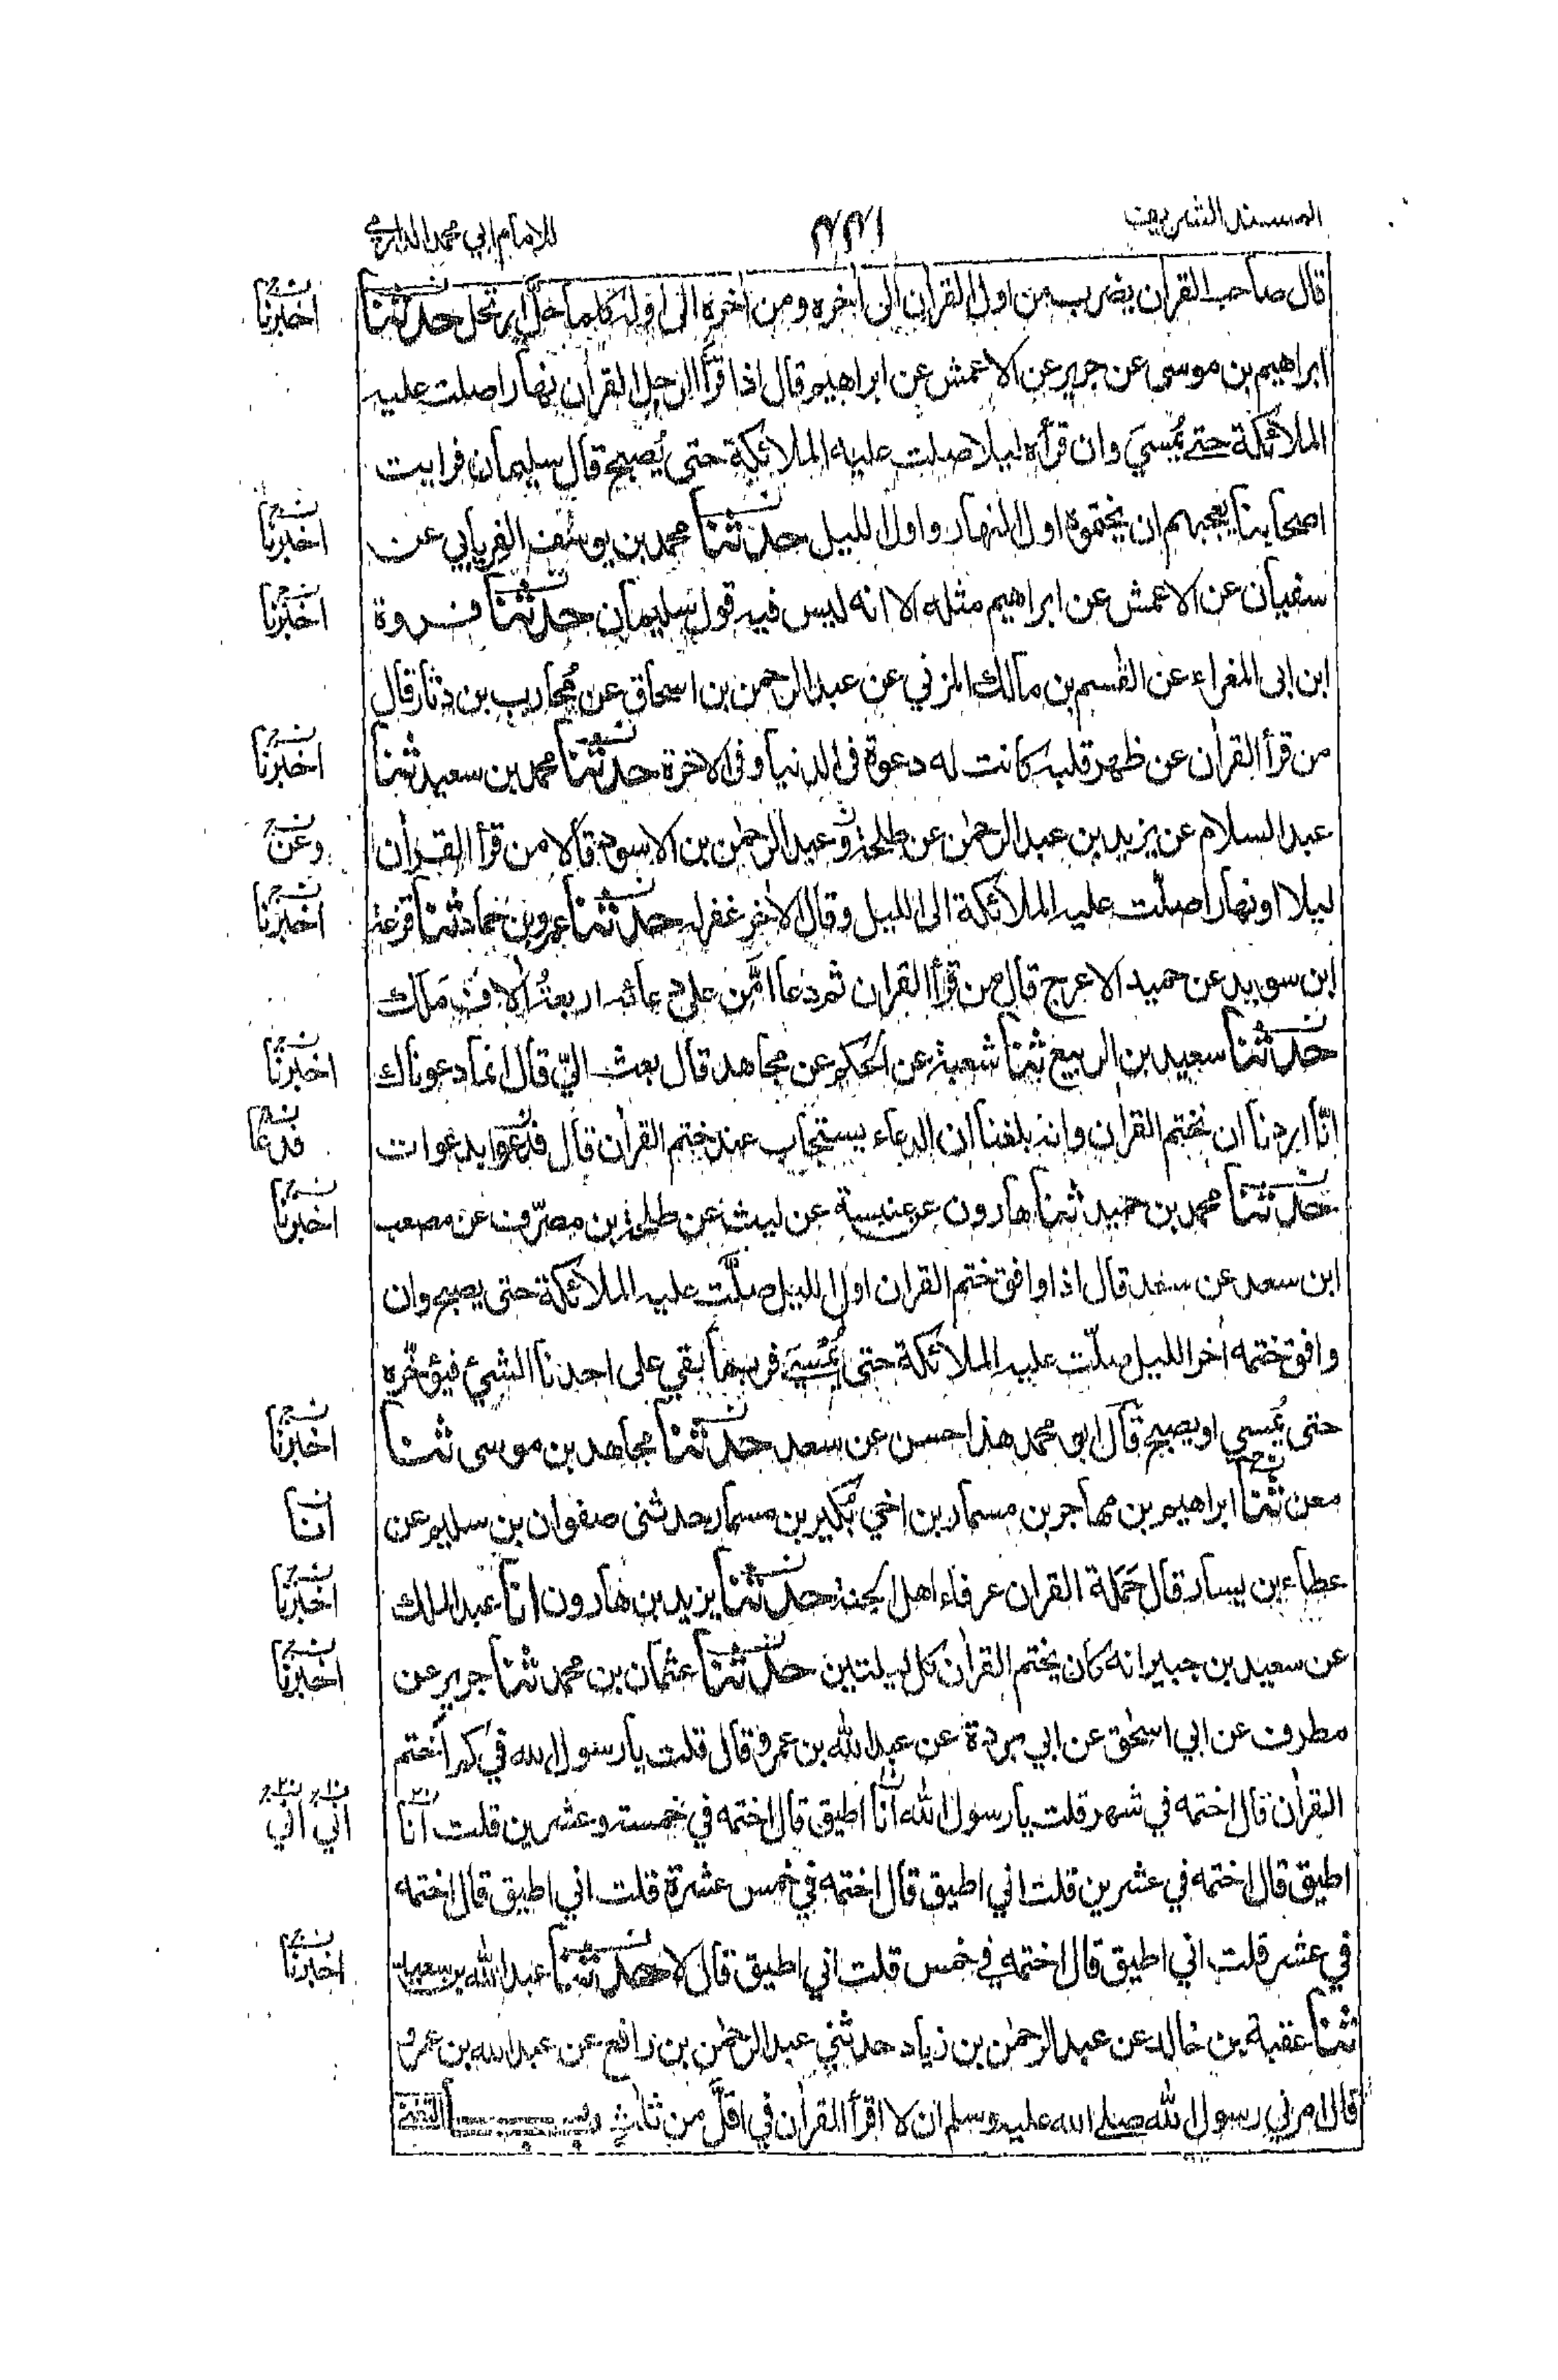 المسند الشريف
للامام ابي محمد الدارمي
قال صاحب القرآن يضرب من اول القرآن الى آخره ومن آخره الى اوله كلما حلّ ارتحل حدثنا
اخبرنا
ابراهيم بن موسى عن جرير عن الاعمش عن ابراهيم قال اذا قرأ الرجل القرآن نهارا صلت عليه
الملائكة حتى يُمسيَ وان قرأه ليلا صلت عليه الملائكة حتى يُصبح قال سليمان فرايت
اصحابنا يعجبهم ان يختموه اول النهار واول الليل حدثنا محمد بن يوسف الفريابي عن
اخبرنا
سفيان عن الاعمش عن ابراهيم مثله الا انه ليس فيه قول سليمان حدثنا فروة
اخبرنا
ابن ابى المغراء عن القٰسم بن مالك المزني عن عبد الرحمن بن اسحاق عن مُحارب بن دثار قال
من قرأ القرآن عن ظهر قلبه كانت له دعوة فى الدنيا وفى الاخرة حدثنا محمد بن سعيد ثنا
اخبرنا
عبد السلام عن يزيد بن عبد الرحمٰن عن طلحة وعبد الرحمٰن بن الاسود قالا من قرأ القرآن
وعن
ليلا او نهارا صلّت عليه الملائكة الى الليل وقال الآخر غفر له حدثنا عمرو بن حماد ثنا قزعة
اخبرنا
ابن سويد عن حميد الاعرج قال من قرأ القرآن ثم دعا امّن على دعائه اربعةُ آلاف مَلَك
حدثنا سعيد بن الربيع ثنا شعبة عن الحكم عن مجاهد قال بعث اليّ قال انما دعوناك
اخبرنا
انّا اردنا ان نختم القرآن وانه بلغنا ان الدعاء يستجاب عند ختم القرآن قال فدعوا بدعوات
فدعا
حدثنا محمد بن حميد ثنا هارون عن عنبسة عن ليث عن طلحة بن مصرّف عن مصعب
اخبرنا
ابن سعد عن سعد قال اذا وافق ختم القرآن اوّل الليل صلّت عليه الملائكة حتى يصبح وان
وافق ختمه آخر الليل صلّت عليه الملائكة حتى يُمْسيَ فربما بقي على احدنا الشئ فيؤخّره
حتى يُمسي او يصبح قال ابو محمد هذا حسن عن سعد حدثنا مجاهد بن موسى ثنا
اخبرنا
معن ثنا ابراهيم بن مهاجر بن مسمار بن اخي بُكير بن مسمار حدثنى صفوان بن سليم عن
انا
عطاء بن يسار قال حَمَلة القرآن عرفاء اهل الجنة حدثنا يزيد بن هارون انا عبد الملك
اخبرنا
عن سعيد بن جبير انه كان يختم القرآن كل ليلتين حدثنا عثمان بن محمد ثنا جرير عن
اخبرنا
مطرف عن ابي اسحٰق عن ابي بردة عن عبد الله بن عمرو قال قلت يا رسول الله في كم اَختم
القرآن قال اختمه في شهر قلت يا رسول الله انا اطيق قال اختمه في خمسة وعشرين قلت انا
اني اني
اطيق قال اختمه في عشرين قلت اني اطيق قال اختمه في خمس عشرة قلت اني اطيق قال اختمه
في عشر قلت اني اطيق قال اختمه في خمس قلت اني اطيق قال لا حدثنا عبد الله بن سعيد
اخبرنا
ثنا عقبة بن خالد عن عبد الرحمٰن بن زياد حدثني عبد الرحمٰن بن رافع عن عبد الله بن عمرو
قال امرني رسول الله صلى الله عليه وسلم ان لا اقرأ القرآن في اقلَّ من ثلاث